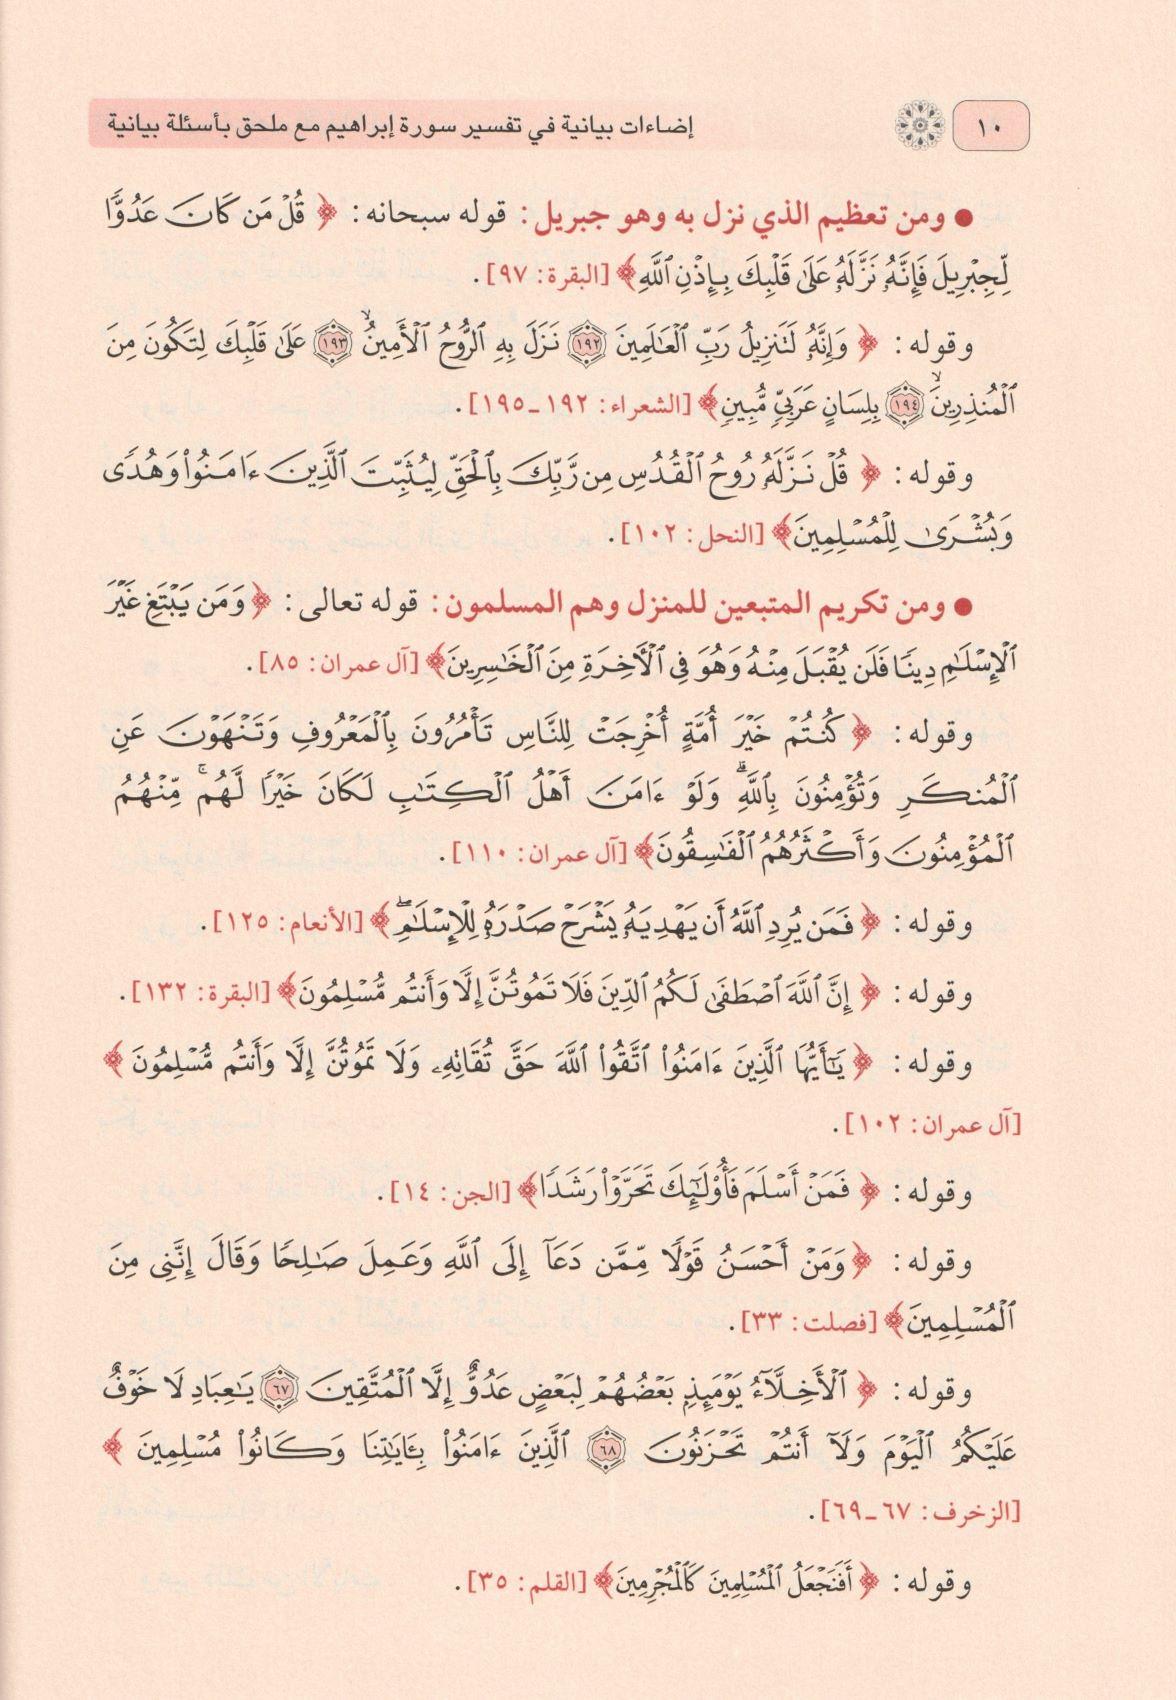 ١٠
إضاءات بيانية في تفسير سورة إبراهيم مع ملحق بأسئلة بيانية
● ومن تعظيم الذي نزل به وهو جبريل: قوله سبحانه: ﴿ قُلْ مَن كَانَ عَدُوًّا
لِّجِبْرِيلَ فَإِنَّهُۥ نَزَّلَهُۥ عَلَىٰ قَلْبِكَ بِإِذْنِ ٱللَّهِ﴾ [البقرة: ٩٧].
وقوله: ﴿ وَإِنَّهُۥ لَتَنزِيلُ رَبِّ ٱلْعَـٰلَمِينَ ١٩٢ نَزَلَ بِهِ ٱلرُّوحُ ٱلْأَمِينُ ١٩٣ عَلَىٰ قَلْبِكَ لِتَكُونَ مِنَ
ٱلْمُنذِرِينَ ١٩٤ بِلِسَانٍ عَرَبِيٍّ مُّبِينٍ﴾ [الشعراء: ١٩٢ـ١٩٥].
وقوله: ﴿ قُلْ نَزَّلَهُۥ رُوحُ ٱلْقُدُسِ مِن رَّبِّكَ بِٱلْحَقِّ لِيُثَبِّتَ ٱلَّذِينَ ءَامَنُوا۟ وَهُدًى
وَبُشْرَىٰ لِلْمُسْلِمِينَ﴾ [النحل: ١٠٢].
● ومن تكريم المتبعين للمنزل وهم المسلمون: قوله تعالى: ﴿ وَمَن يَبْتَغِ غَيْرَ
ٱلْإِسْلَـٰمِ دِينًا فَلَن يُقْبَلَ مِنْهُ وَهُوَ فِى ٱلْـَٔاخِرَةِ مِنَ ٱلْخَـٰسِرِينَ﴾ [آل عمران: ٨٥].
وقوله: ﴿ كُنتُمْ خَيْرَ أُمَّةٍ أُخْرِجَتْ لِلنَّاسِ تَأْمُرُونَ بِٱلْمَعْرُوفِ وَتَنْهَوْنَ عَنِ
ٱلْمُنكَرِ وَتُؤْمِنُونَ بِٱللَّهِ ۗ وَلَوْ ءَامَنَ أَهْلُ ٱلْكِتَـٰبِ لَكَانَ خَيْرًا لَّهُم ۚ مِّنْهُمُ
ٱلْمُؤْمِنُونَ وَأَكْثَرُهُمُ ٱلْفَـٰسِقُونَ﴾ [آل عمران: ١١٠].
وقوله: ﴿ فَمَن يُرِدِ ٱللَّهُ أَن يَهْدِيَهُۥ يَشْرَحْ صَدْرَهُۥ لِلْإِسْلَـٰمِ ۖ﴾ [الأنعام: ١٢٥].
وقوله: ﴿ إِنَّ ٱللَّهَ ٱصْطَفَىٰ لَكُمُ ٱلدِّينَ فَلَا تَمُوتُنَّ إِلَّا وَأَنتُم مُّسْلِمُونَ﴾ [البقرة: ١٣٢].
وقوله: ﴿ يَـٰٓأَيُّهَا ٱلَّذِينَ ءَامَنُوا۟ ٱتَّقُوا۟ ٱللَّهَ حَقَّ تُقَاتِهِۦ وَلَا تَمُوتُنَّ إِلَّا وَأَنتُم مُّسْلِمُونَ ﴾
[آل عمران: ١٠٢].
وقوله: ﴿ فَمَنْ أَسْلَمَ فَأُو۟لَـٰٓئِكَ تَحَرَّوْا۟ رَشَدًا﴾ [الجن: ١٤].
وقوله: ﴿ وَمَنْ أَحْسَنُ قَوْلًا مِّمَّن دَعَآ إِلَى ٱللَّهِ وَعَمِلَ صَـٰلِحًا وَقَالَ إِنَّنِى مِنَ
ٱلْمُسْلِمِينَ﴾ [فصلت: ٣٣].
وقوله: ﴿ ٱلْأَخِلَّآءُ يَوْمَئِذٍۭ بَعْضُهُمْ لِبَعْضٍ عَدُوٌّ إِلَّا ٱلْمُتَّقِينَ ٦٧ يَـٰعِبَادِ لَا خَوْفٌ
عَلَيْكُمُ ٱلْيَوْمَ وَلَآ أَنتُمْ تَحْزَنُونَ ٦٨ ٱلَّذِينَ ءَامَنُوا۟ بِـَٔايَـٰتِنَا وَكَانُوا۟ مُسْلِمِينَ ﴾
[الزخرف: ٦٧ـ٦٩].
وقوله: ﴿ أَفَنَجْعَلُ ٱلْمُسْلِمِينَ كَٱلْمُجْرِمِينَ﴾ [القلم: ٣٥].